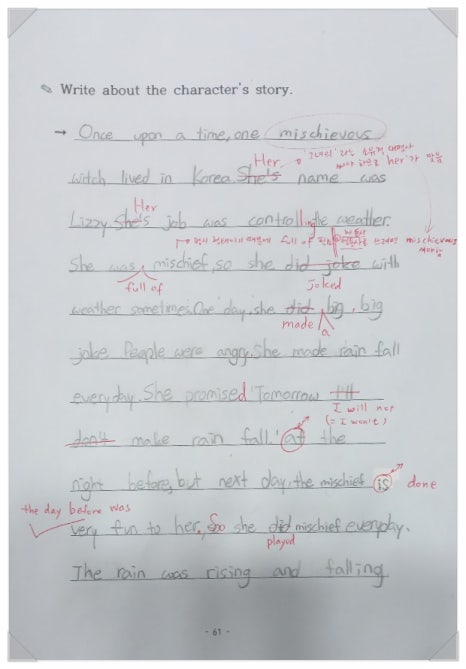 ✎ Write about the character's story.
→ Once upon a time, one mischievous
Her → '그녀의' 라는 소유격 대명사
써야 하므로 her 가 맞음
witch lived in Korea. She's name was
Her
Lizzy She's job was controlling the weather.
full of mischievous
She was, mischief, so she did joke with
full of joked
weather sometimes. One day, she did big, big
made a
joke People were angry. She made rain fall
everyday. She promised 'Tomorrow
I will not
(= I won't)
don't make rain fall.' at the
night before, but next day, the mischief is done
the day before was
very fun to her, So she did mischief everyday.
played
The rain was rising and falling
- 61 -